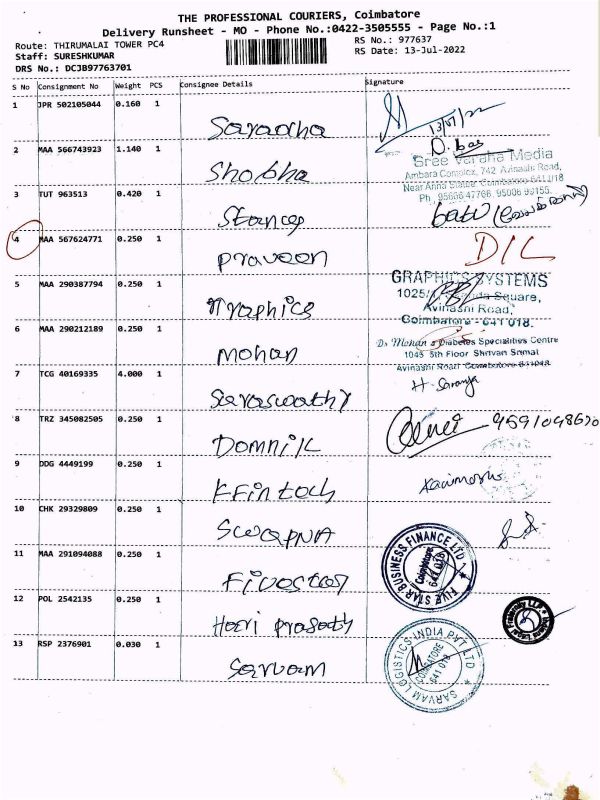 THE PROFESSIONAL COURIERS, Coimbatore
Delivery Runsheet - MO - Phone No.:0422-3505555 - Page No.:1
Route: THIRUMALAI TOWER PC4
RS No.: 977637
Staff: SURESHKUMAR
RS Date: 13-Jul-2022
DRS No.: DCJB97763701
S No Consignment No Weight PCS Consignee Details Signature
1 JPR 502105044 0.160 1 Saradha 13/07/22
D. bas
2 MAA 566743923 1.140 1 Shobha
Sree Varaha Media
Ambara Complex, 742 Avinashi Road,
Near Anna Statue Coimbatore-641018
Ph 95606 47766, 95006 93155
3 TUT 963513 0.420 1 Stances
4 MAA 567624771 0.250 1 Praveen D/L
5 MAA 290387794 0.250 1 Graphics
GRAPHICS SYSTEMS
1025/ Square,
Avinashi Road,
Coimbatore - 641 018.
6 MAA 290212189 0.250 1 Mohan
Dr Mohan's Diabetes Specialities Centre
1045 5th Floor Shrivari Srimat
Avinashi Road Coimbatore 641018
7 TCG 40169335 4.000 1 Saraswathy H. Saranya
8 TRZ 345082505 0.250 1 Dominik
9 DDG 4449199 0.250 1 KFintech
10 CHK 29329809 0.250 1 Swapna
11 MAA 291094088 0.250 1 Fivestar
FIVE STAR BUSINESS FINANCE LTD
Coimbatore
641 018
12 POL 2542135 0.250 1 Hari prasath
13 RSP 2376901 0.030 1 Sarvam
SARVAM LOGISTICS INDIA PVT LTD
COIMBATORE
641 018